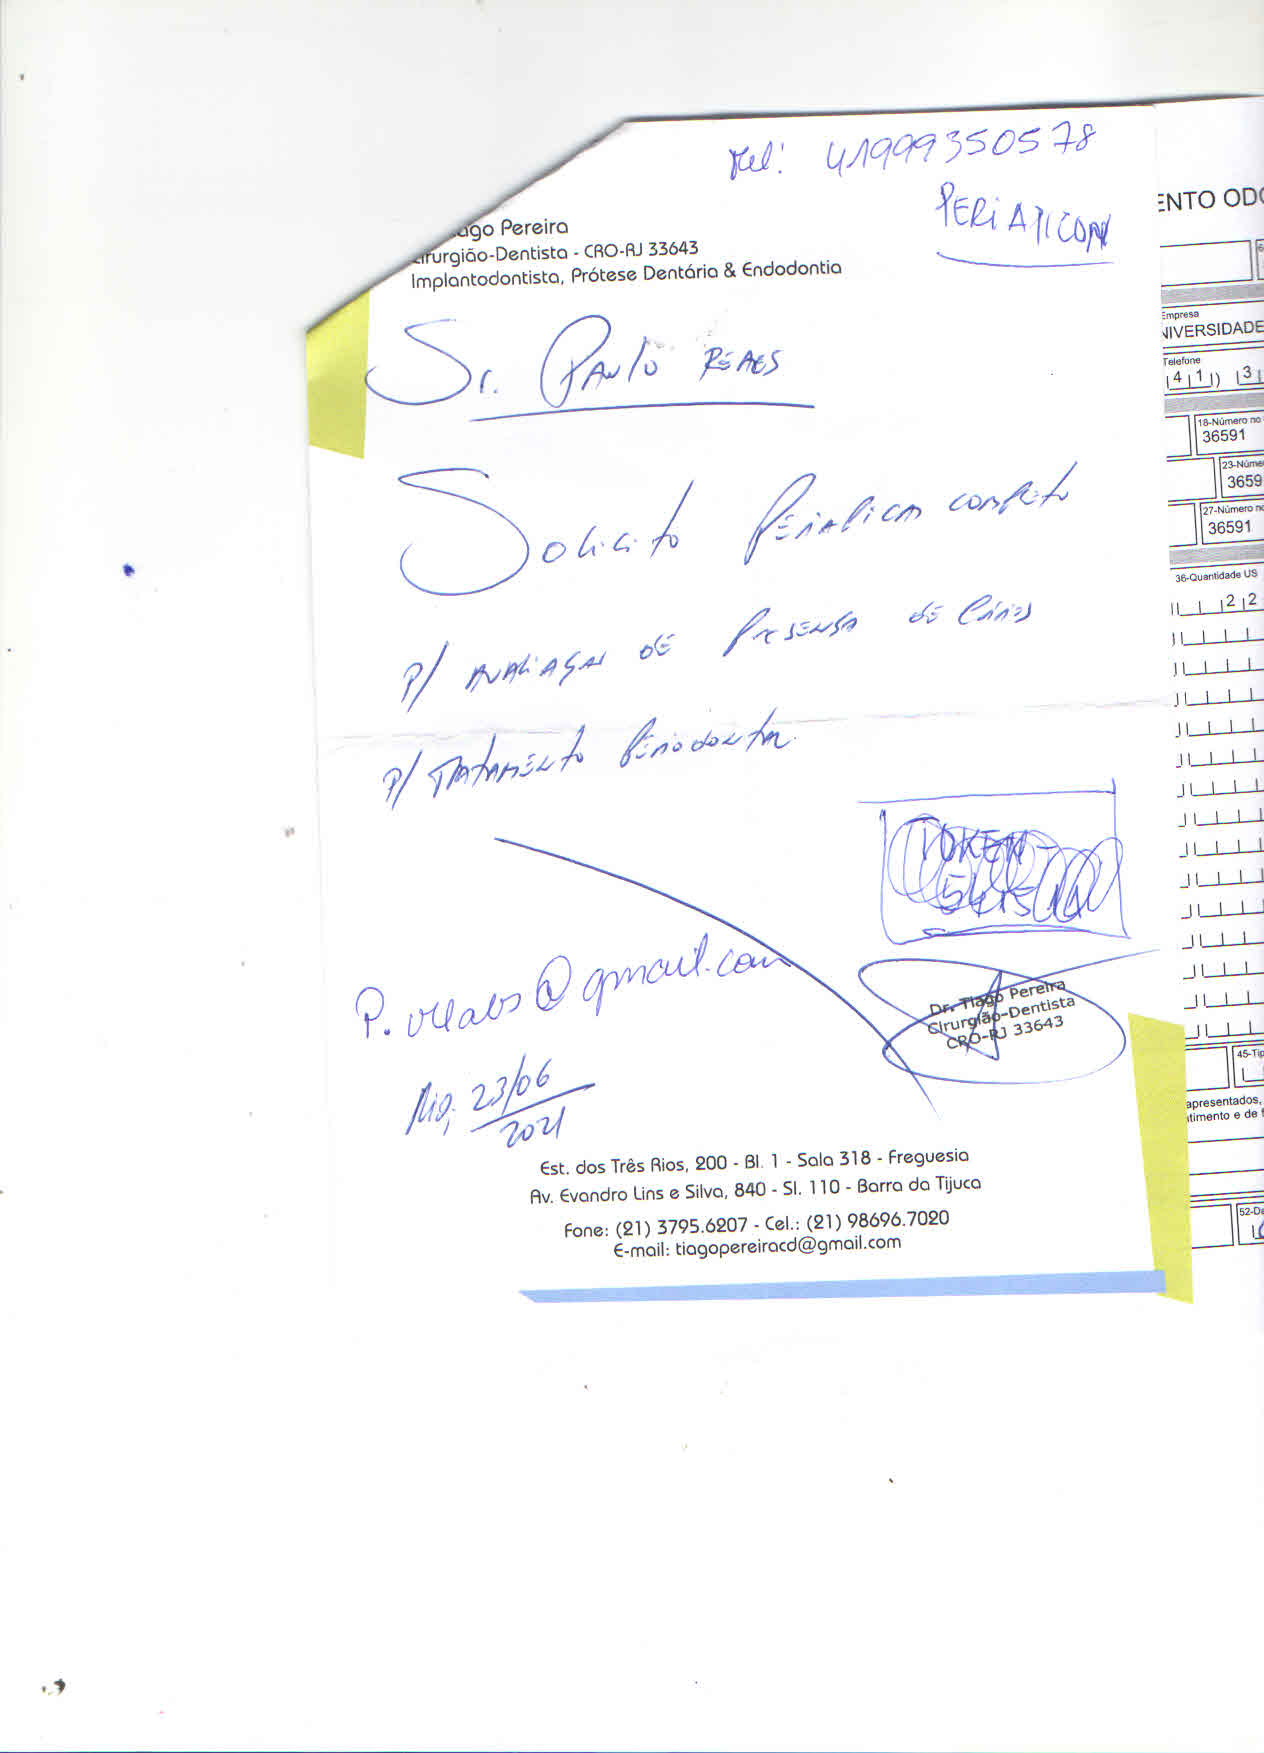 Tel: 41999350578
PERIAPICAL
ago Pereira
irurgião-Dentista - CRO-RJ 33643
Implantodontista, Prótese Dentária & Endodontia
Sr. PAULO
Solicito Periapical completo
P/ AVALIAÇÃO DE PRESENSA DE CÁRIES
P/ TRATAMENTO Periodontal
TOKEN-
@gmail.com
Dr. Tiago Pereira
Cirurgião-Dentista
CRO-RJ 33643
Rio, 23/06
2021
Est. dos Três Rios, 200 - Bl. 1 - Sala 318 - Freguesia
Av. Evandro Lins e Silva, 840 - Sl. 110 - Barra da Tijuca
Fone: (21) 3795.6207 - Cel.: (21) 98696.7020
E-mail: tiagopereiracd@gmail.com
ENTO ODO
Empresa
NIVERSIDADE
Telefone
(41) 3
18-Número no
36591
23-Núme
3659
27-Número no
36591
36-Quantidade US
22
45-Tip
apresentados,
timento e de f
52-Da